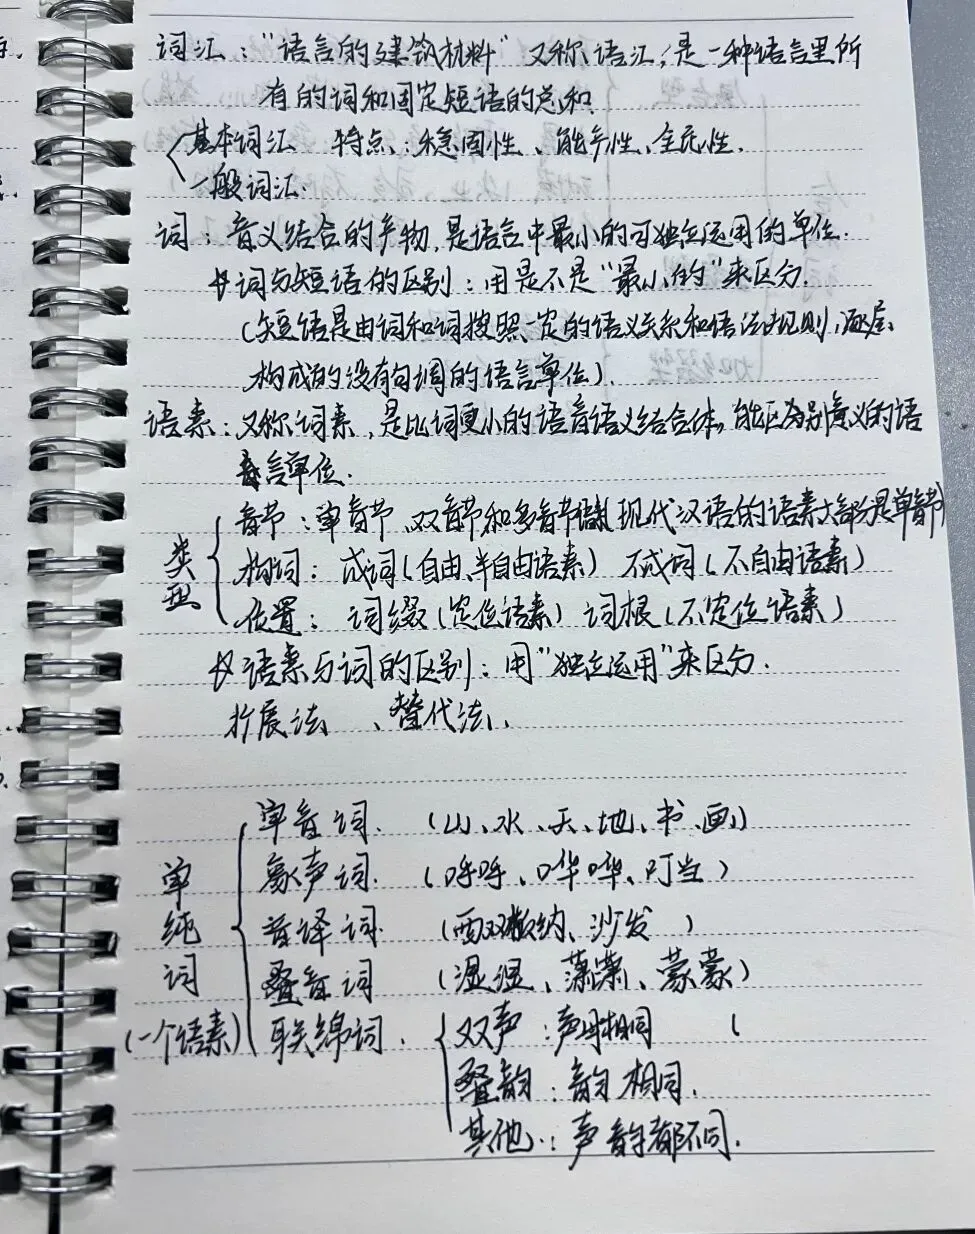 词汇："语言的建筑材料" 又称语汇，是一种语言里所
有的词和固定短语的总和
基本词汇 特点：稳固性、能产性、全民性.
一般词汇.
词：音义结合的产物，是语言中最小的可独立运用的单位.
词与短语的区别：用是不是"最小的"来区分.
(短语是由词和词按照一定的语义关系和语法规则，逐层
构成的没有句调的语言单位).
语素：又称词素，是比词更小的语音语义结合体，能区别意义的语
言单位.
类型
音节：单音节、双音节和多音节 现代汉语的语素大部分是单音节
构词：成词(自由、半自由语素) 不成词(不自由语素)
位置：词缀(定位语素) 词根(不定位语素)
语素与词的区别：用"独立运用"来区分.
扩展法、替代法、
单纯词
(一个语素)
单音词. (山、水、天、地、书、画)
象声词. (呼呼、哗哗、叮当)
音译词 (西双版纳、沙发)
叠音词 (湿湿、潇潇、蒙蒙)
联绵词.
双声：声母相同 (
叠韵：韵相同.
其他：声韵都不同.